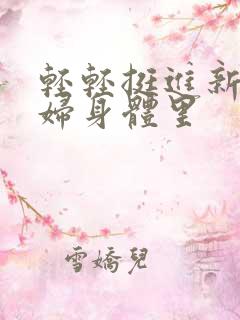 輕輕挺進新
婦身體里
雪嬌兒